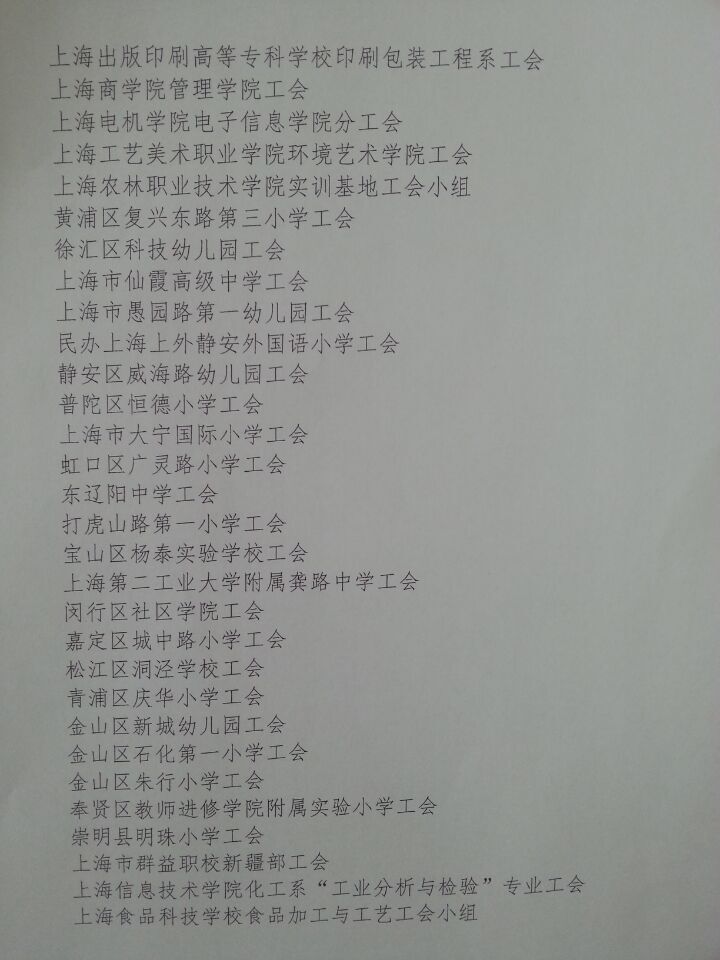 上海出版印刷高等专科学校印刷包装工程系工会
上海商学院管理学院工会
上海电机学院电子信息学院分工会
上海工艺美术职业学院环境艺术学院工会
上海农林职业技术学院实训基地工会小组
黄浦区复兴东路第三小学工会
徐汇区科技幼儿园工会
上海市仙霞高级中学工会
上海市愚园路第一幼儿园工会
民办上海上外静安外国语小学工会
静安区威海路幼儿园工会
普陀区恒德小学工会
上海市大宁国际小学工会
虹口区广灵路小学工会
东辽阳中学工会
打虎山路第一小学工会
宝山区杨泰实验学校工会
上海第二工业大学附属龚路中学工会
闵行区社区学院工会
嘉定区城中路小学工会
松江区洞泾学校工会
青浦区庆华小学工会
金山区新城幼儿园工会
金山区石化第一小学工会
金山区朱行小学工会
奉贤区教师进修学院附属实验小学工会
崇明县明珠小学工会
上海市群益职校新疆部工会
上海信息技术学院化工系“工业分析与检验”专业工会
上海食品科技学校食品加工与工艺工会小组